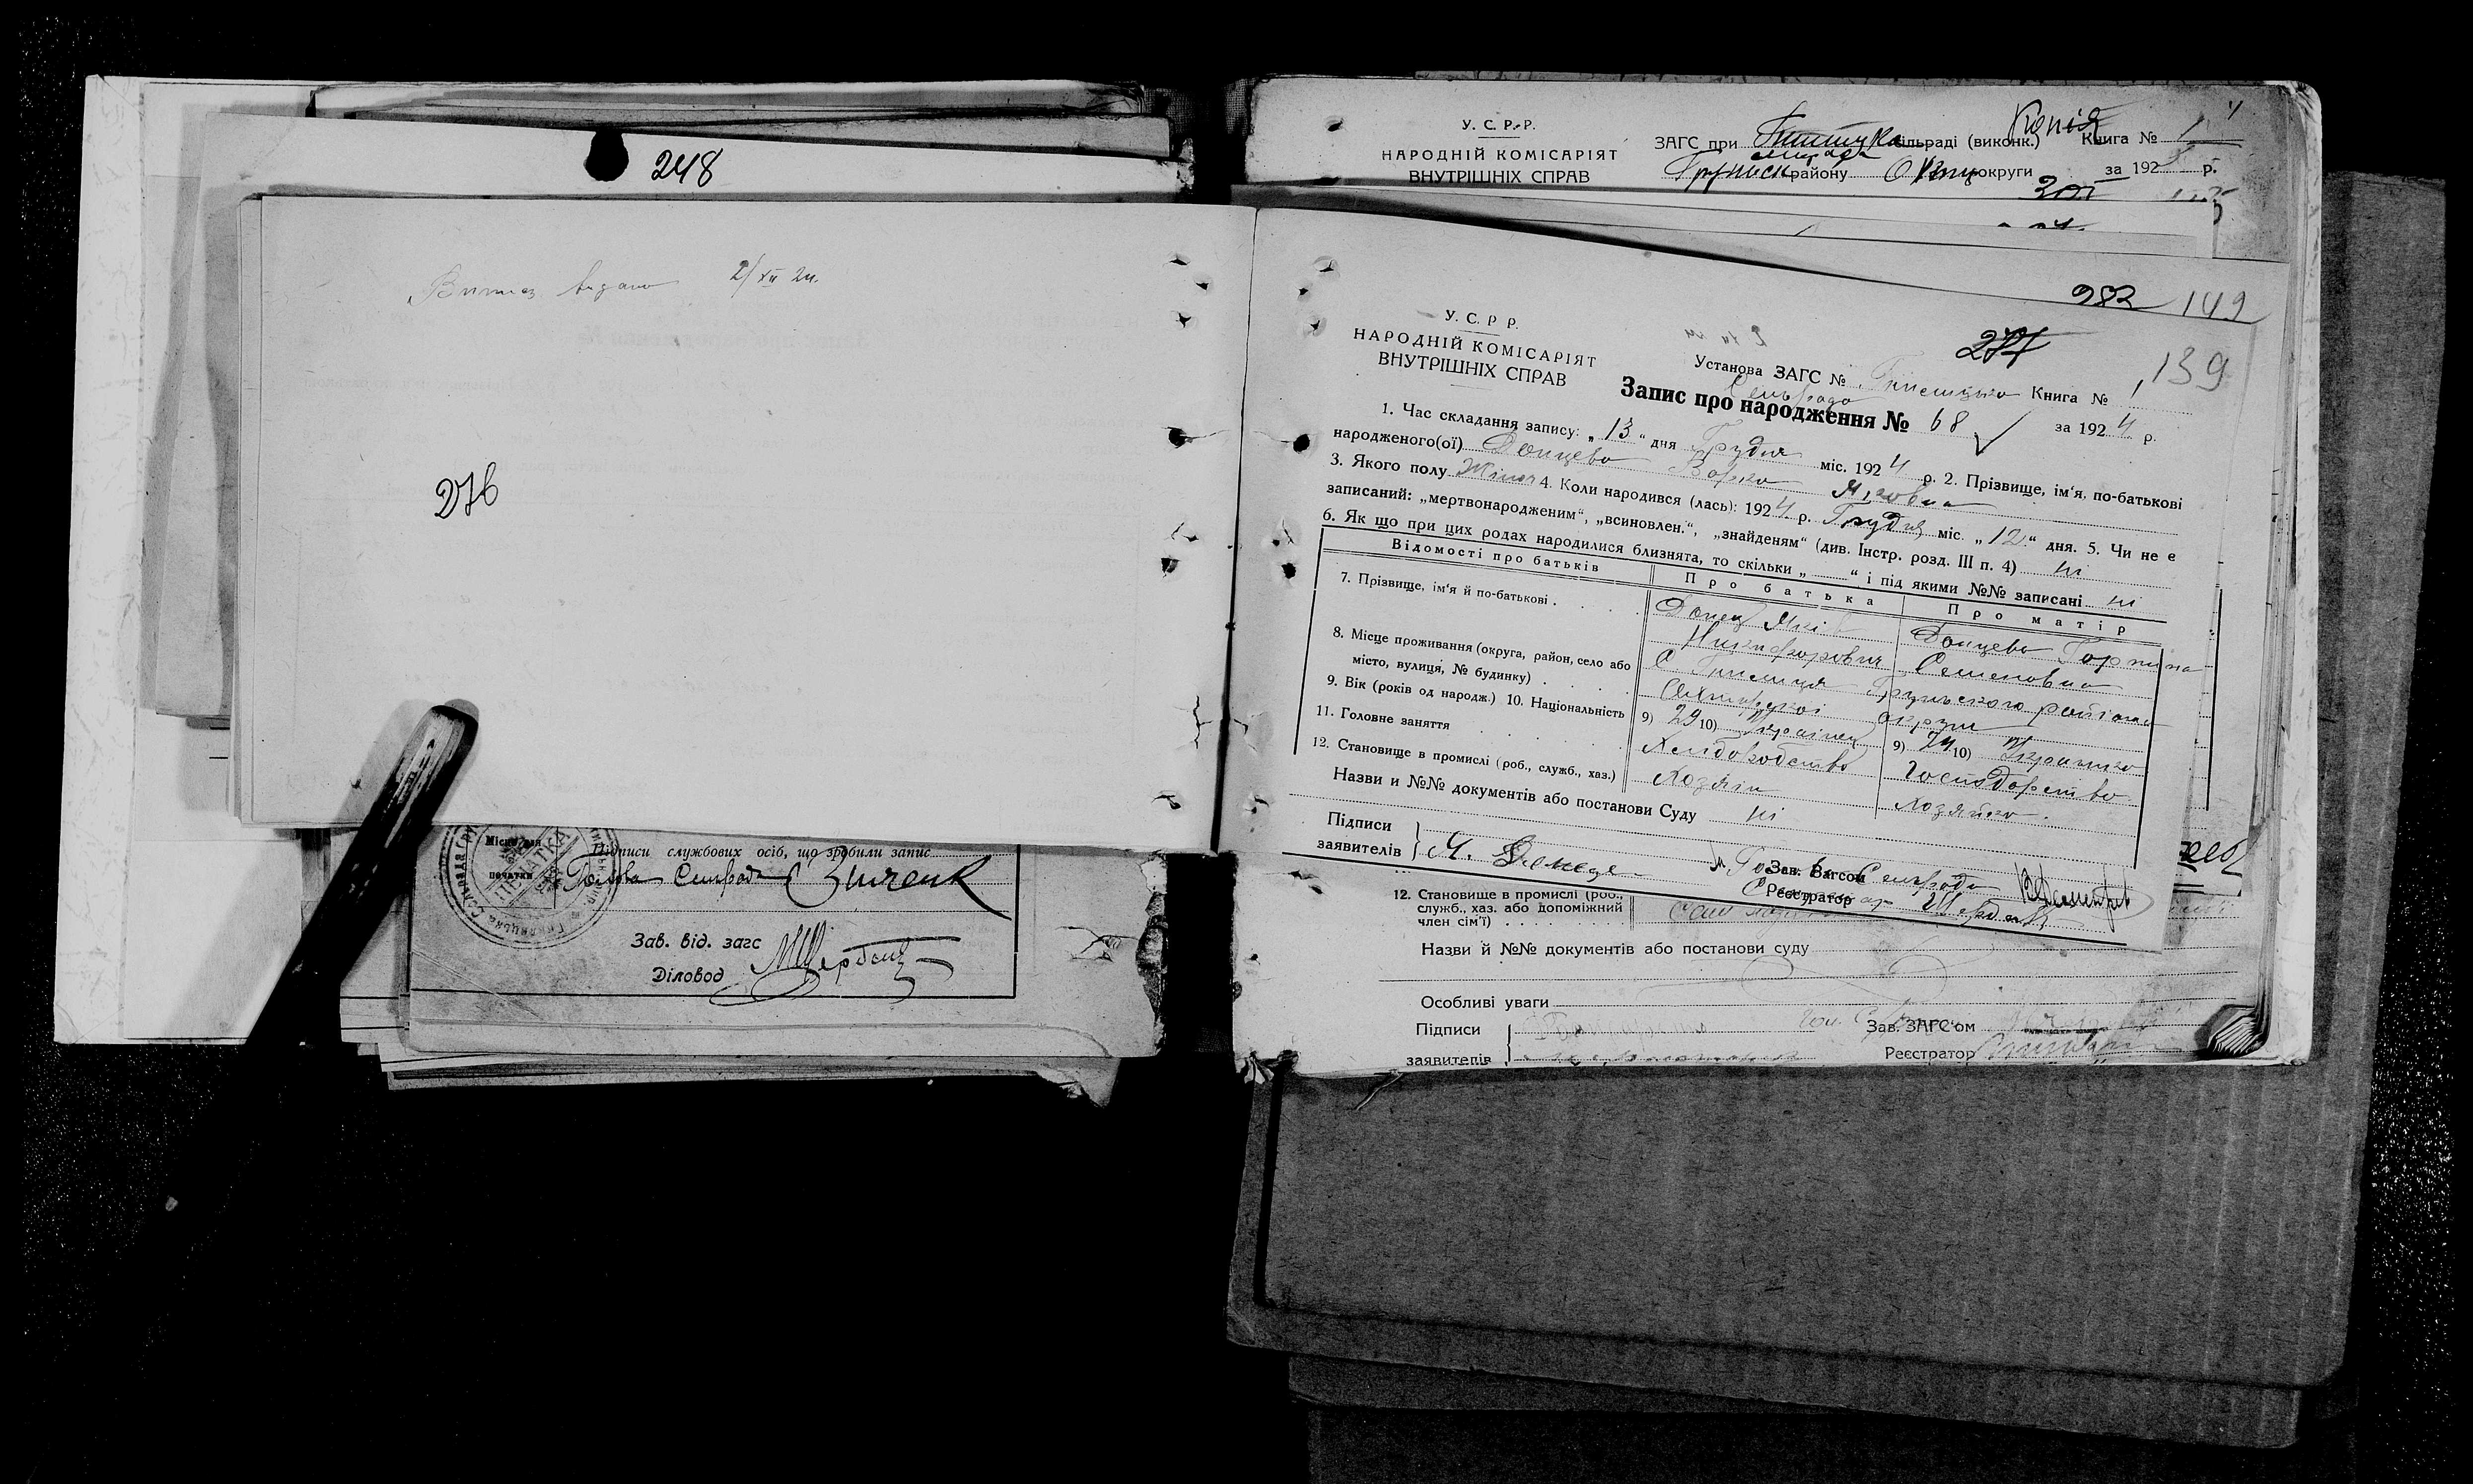 248
Випись видано 2/XII 24.
276
ПЕЧАТКА
Місце для
печатки
Підписи службових осіб, що зробили запис
Голова Сільради
Зав. від. загс
Діловод
У. С. Р. Р.
НАРОДНІЙ КОМІСАРІЯТ
ВНУТРІШНІХ СПРАВ
Копія
ЗАГС при сільраді (виконк.) Книга № 1
Грунськ району Охтир округи за 192 р.
982 149
У. С. Р Р.
НАРОДНІЙ КОМІСАРІЯТ
ВНУТРІШНІХ СПРАВ
277
139
Установа ЗАГС № Книга № 1
Сельрада
Запис про народження № 68 за 1924 р.
1. Час складання запису: „13“ дня Грудня міс. 1924 р. 2. Прізвище, ім'я, по-батькові
народженого(ої) Донцева Варка Яковна
3. Якого полу Жіноч 4. Коли народився (лась): 1924 р. Грудня міс. „12“ дня. 5. Чи не є
записаний: „мертвонародженим“, „всиновлен.“, „знайденям“ (див. Інстр. розд. III п. 4) ні
6. Як що при цих родах народилися близнята, то скільки „ “ і під якими №№ записані ні
Відомості про батьків Про батька Про матір
7. Прізвище, ім'я й по-батькові Донец Яків Никифорович Донцева Горпина Семеновна
8. Місце проживання (округа, район, село або
місто, вулиця, № будинку) Грунського району
Охтирської округи
9. Вік (років од народж.) 10. Національність 9) 29 10) Українец 9) 24 10) Українка
11. Головне заняття Хлібородство Господарство
12. Становище в промислі (роб., служб., хаз.) Хозяін Хозяйка.
Назви и №№ документів або постанови Суду ні
Підписи
заявителів } Я. Донец
Зав. Загсом Сельради
Реєстратор
12. Становище в промислі (роб.,
служб., хаз. або допоміжний
член сім'ї)
Назви й №№ документів або постанови суду
Особливі уваги
Підписи
заявителів
Зав. ЗАГС'ом
Реєстратор